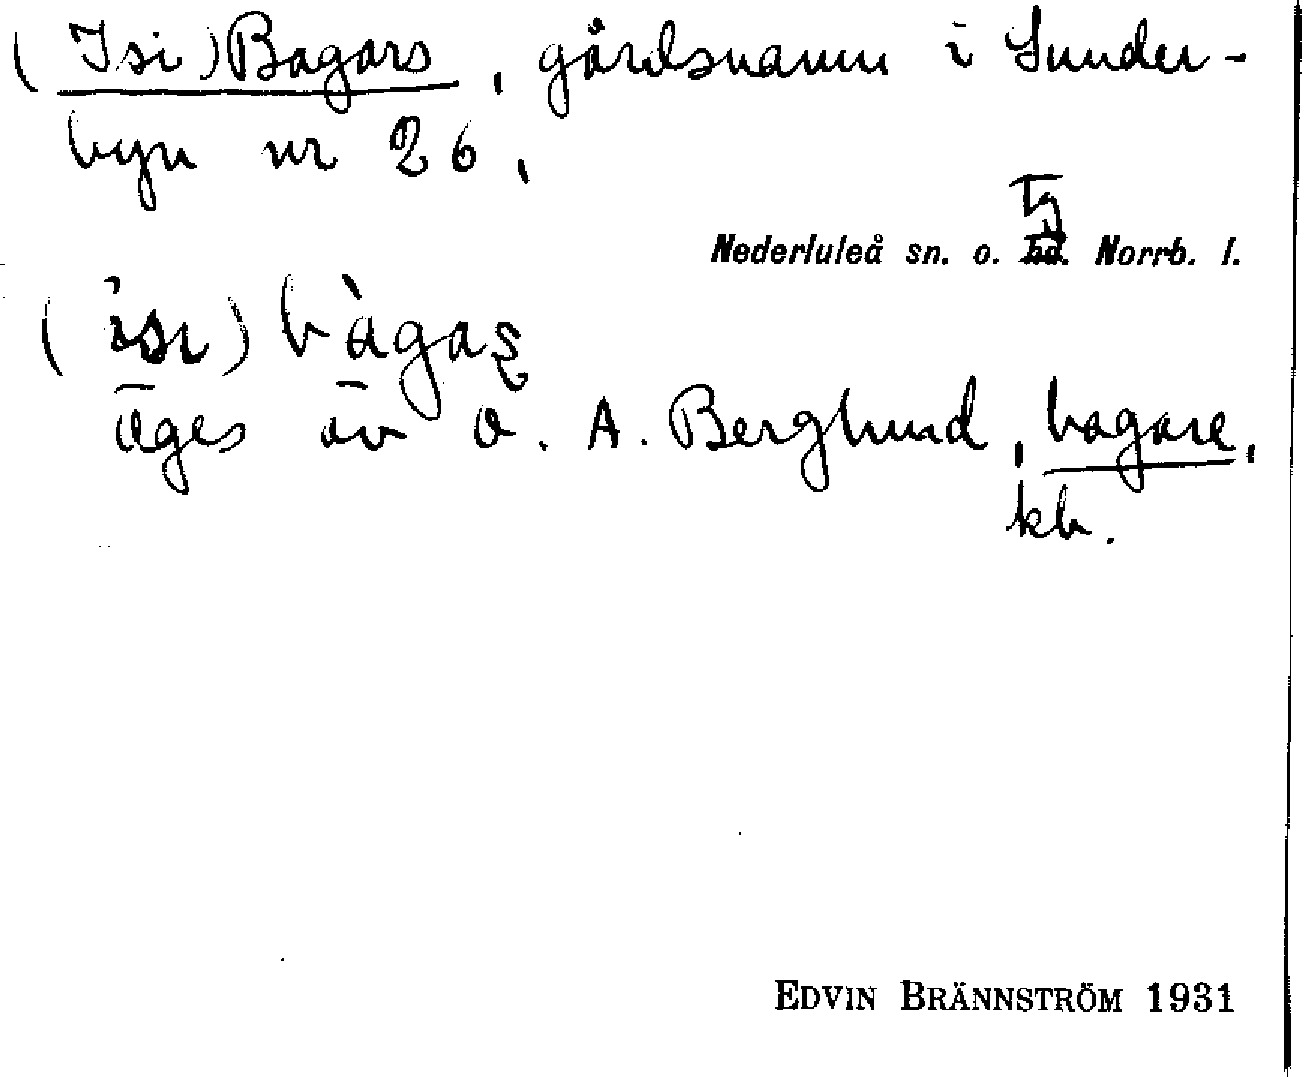 (Isi)Bagars, gårdsnamn i Sunder-
byn nr 26,
tg
Nederluleå sn. o. hd. Norrb. l.
(ìsɩ) bàgaʂ
äges av O. A. Berglund, bagare,
kb.
EDVIN BRÄNNSTRÖM 1931